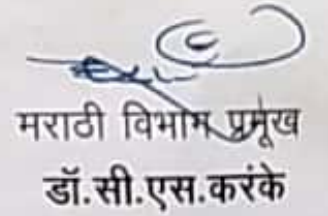 मराठी विभाग प्रमूख
डॉ.सी.एस.करंके